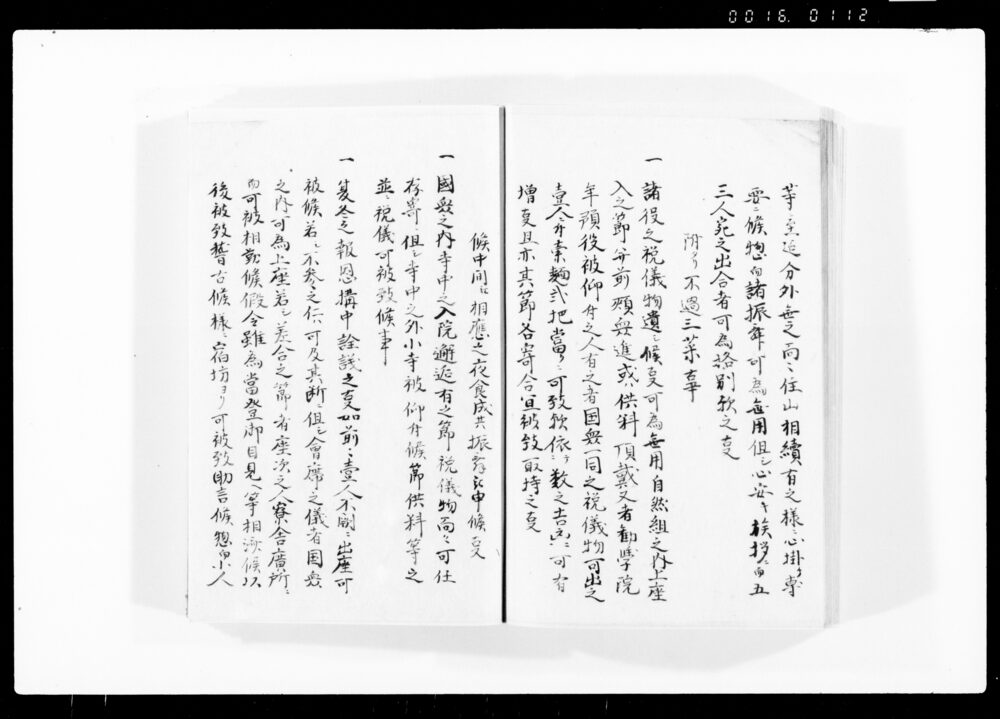 0016. 0112
等ニ至迄分外無之而ニ住山相續有之様ニ心掛ヶ専
要ニ候惣而諸振舞可為無用但シ心安キ挨拶ニ而五
三人宛之出合者可為格別歟之事
附り不過三菜事
一 諸役之祝儀物遣シ候事可為無用自然組之内上座
入之節并前頭無進或供料頂戴又者勧学院
年預役被仰付之人有之者国衆一同之祝儀物可出之
壹人ニ付素麺弐把當ニ可致歟依ヶ数之吉凶ニ可有
増事且亦其節各寄合宜被致取持之事
候中間江相應之夜食成共振舞可申候事
一 國衆之内寺中之入院邂逅有之節祝儀物而ニ可任
存寄ニ但シ寺中之外小寺被仰付候節供料等之
並ニ祝儀可被致候事
一 夏冬之報恩講中詮議之事如前ニ壹人不闕ニ出座可
被候若シ不参之仁ハ可及其断ニ但シ會席之儀者国衆
之内可為上座若シ差合之節者座次之人寮舎廣所ニ
而可被相勤候假令雖為當登御目見へ等相済候以
後被致稽古候様ニ宿坊ヨリ可被致助言候惣而小人